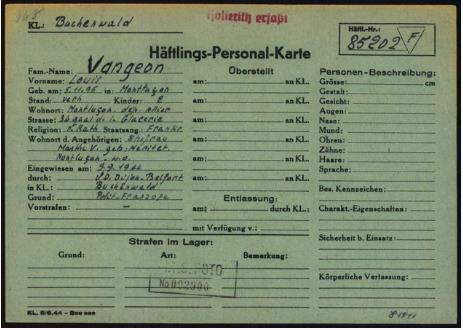 KL.: Buchenwald
Hollerith erfaßt
Häftl.-Nr.:
85202 F
Häftlings-Personal-Karte
Fam.-Name: Vangeon
Vorname: Louis
Geb. am: 5.11.96 in: Montluçon
Stand: verh. Kinder: 2
Wohnort: Montluçon dep. Allier
Strasse: de la Glacerie
Religion: R. Kath. Staatsang.: Frankr.
Wohnort d. Angehörigen: Ehefrau
V. geb.
Montluçon w.o.
Eingewiesen am: 1944
durch: Dijon-Belfort
in KL.: Buchenwald
Grund: Polit. Franzose
Vorstrafen: –
Überstellt
am: an KL.
am: an KL.
am: an KL.
am: an KL.
am: an KL.
am: an KL.
Entlassung:
am: durch KL.:
mit Verfügung v.:
Personen-Beschreibung:
Grösse: cm
Gestalt:
Gesicht:
Augen:
Nase:
Mund:
Ohren:
Zähne:
Haare:
Sprache:
Bes. Kennzeichen:
Charakt.-Eigenschaften:
Sicherheit b. Einsatz:
Körperliche Verfassung:
Strafen im Lager:
Grund: Art: Bemerkung:
I.T.S. FOTO
No